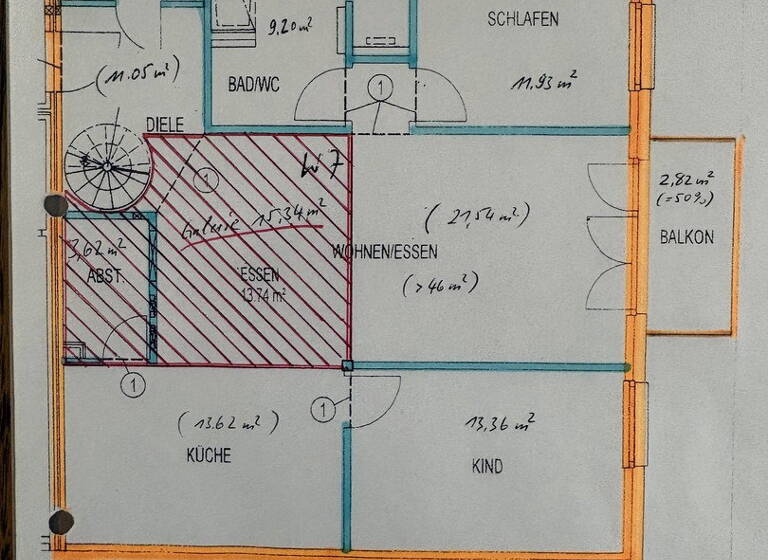 SCHLAFEN
9,20 m²
(11.05 m²)
BAD/WC
11,93 m²
1
DIELE
W7
1
2,82 m²
(=50%)
Galerie 15,34 m²
(21,54 m²)
BALKON
3,62 m²
WOHNEN/ESSEN
ABST.
ESSEN
13.74 m²
(>46 m²)
1
1
(13.62 m²)
13,36 m²
KÜCHE
KIND